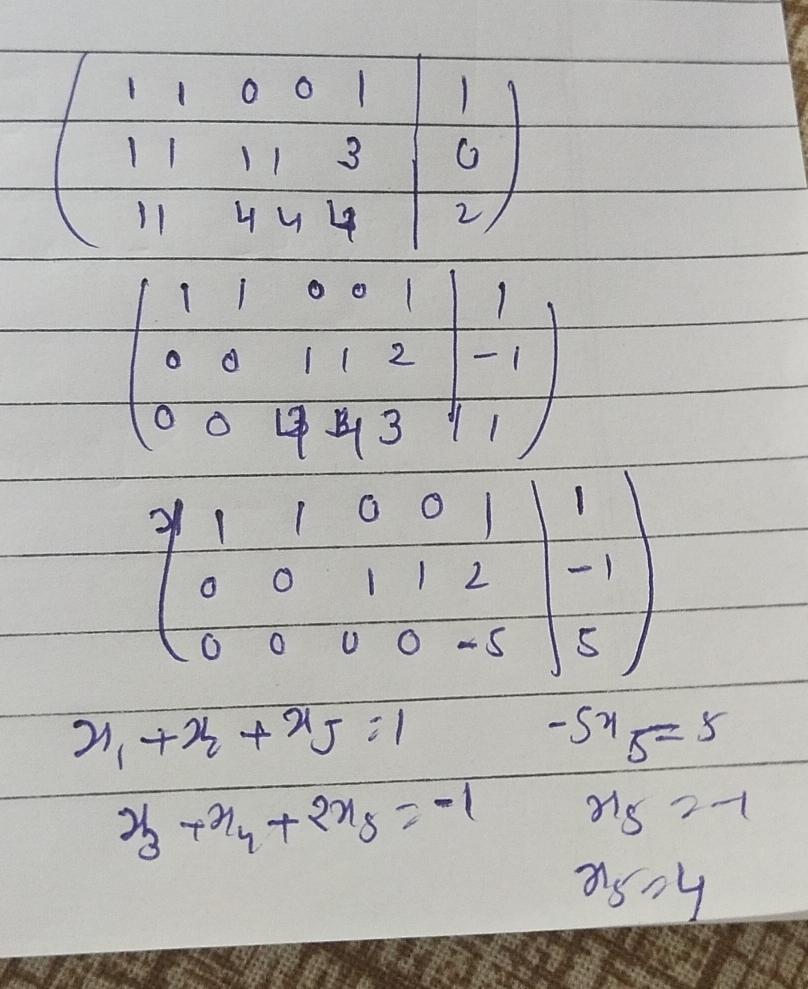 1 1 0 0 1 | 1
1 1 1 1 3 | 0
1 1 4 4 4 | 2
1 1 0 0 1 | 1
0 0 1 1 2 | -1
0 0 4 4 3 | 1
1 1 0 0 1 | 1
0 0 1 1 2 | -1
0 0 0 0 -5 | 5
x₁ + x₂ + x₅ = 1 -5x₅ = 5
x₃ + x₄ + 2x₅ = -1 x₅ = -1
x₅ = 4